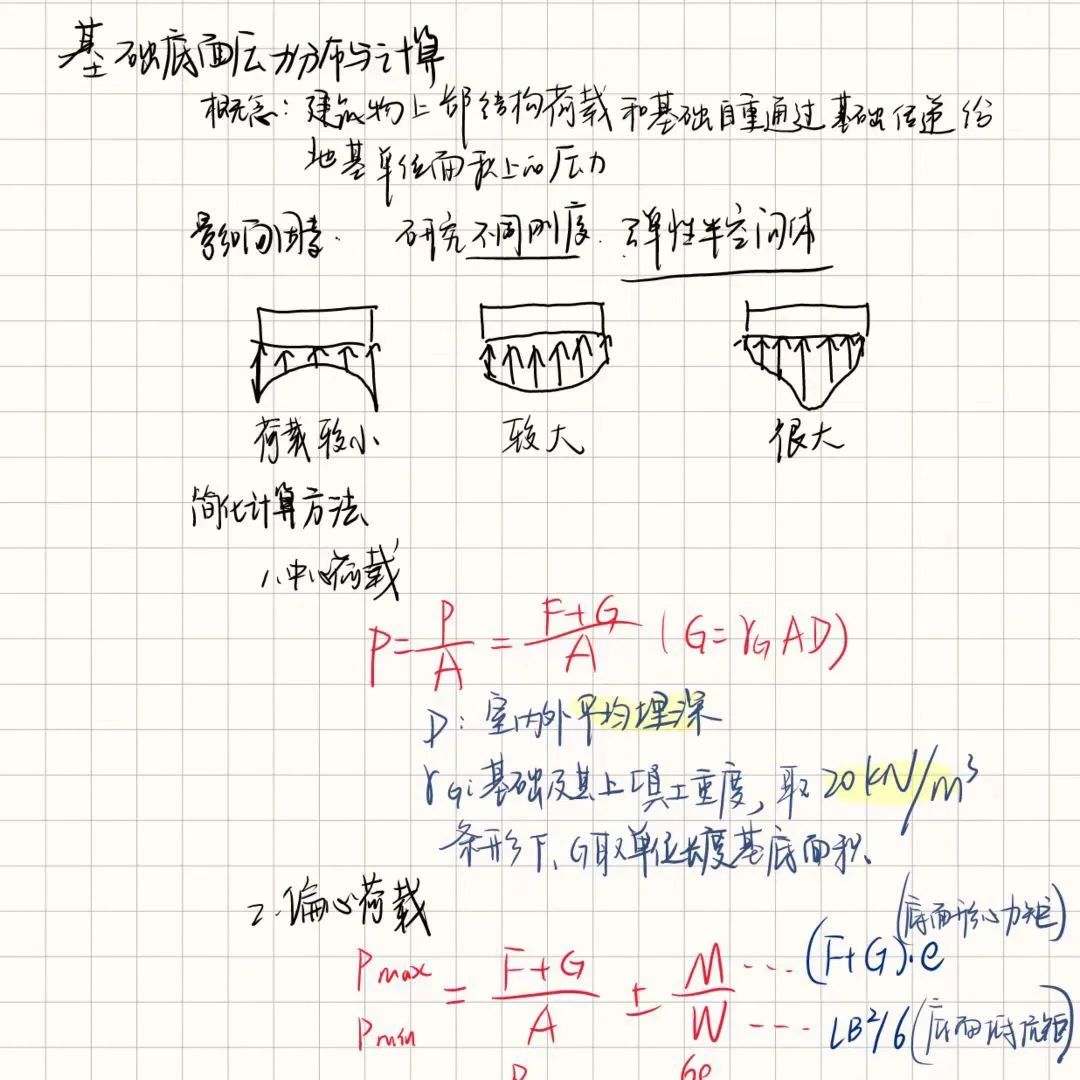 基础底面压力分布与计算
概念：建筑物上部结构荷载和基础自重通过基础传递给
地基单位面积上的压力
影响因素. 研究不同刚度. 弹性半空间体
荷载较小 较大 很大
简化计算方法
1.中心荷载
P=P/A=F+G/A (G=γG AD)
D：室内外平均埋深
γG：基础及其上填土重度，取20kN/m³
条形F、G取单位长度基底面积.
2.偏心荷载
(底面形心力矩)
Pmax Pmin = F+G/A ± M/W ---(F+G)·e
---LB²/6(底面抵抗矩)
P 6e